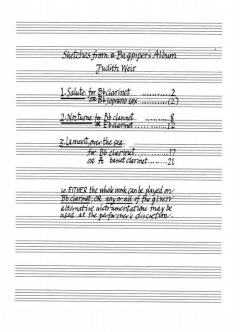 Sketches from a Bagpiper's Album
Judith Weir
1. Salute for B♭ clarinet ........... 2
or B♭ soprano sax ........ (2)
2. Nocturne for B♭ clarinet ........ 8
or E♭ clarinet ........ 12
3. Lament, over the sea
for B♭ clarinet ........ 17
or A basset clarinet ........ 21
ie. EITHER the whole work can be played on
B♭ clarinet, OR any or all of the given
alternative instrumentations may be
used at the performer's discretion.